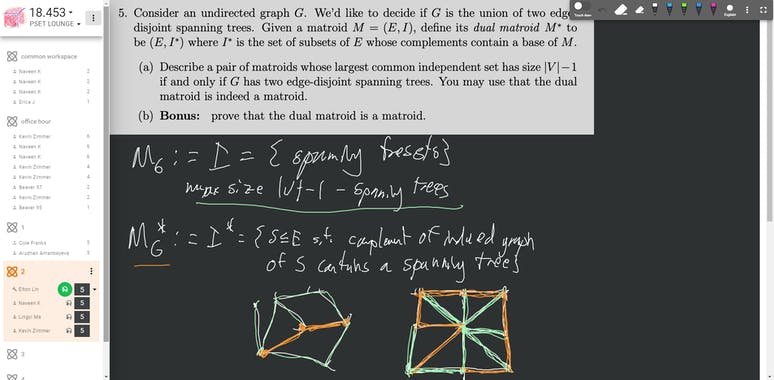 18.453
PSET LOUNGE
common workspace
Naveen K 2
Naveen K 2
Naveen K 2
Erica J 1
office hour
Kevin Zimmer 6
Naveen K 6
Naveen K 6
Kevin Zimmer 4
Kevin Zimmer 4
Beaver 97 2
Kevin Zimmer 2
Beaver 95 1
1
Cole Franks 5
Aruzhan Amanbayeva 5
2
Elton Lin 5
Naveen K 5
Lingyi Ma 5
Kevin Zimmer 5
3
4
Explain
5. Consider an undirected graph G. We'd like to decide if G is the union of two edge
disjoint spanning trees. Given a matroid M = (E, I), define its dual matroid M* to
be (E, I*) where I* is the set of subsets of E whose complements contain a base of M.
(a) Describe a pair of matroids whose largest common independent set has size |V|−1
if and only if G has two edge-disjoint spanning trees. You may use that the dual
matroid is indeed a matroid.
(b) Bonus: prove that the dual matroid is a matroid.
M_G := I = { spanning }
max size |V|-1 - spanning trees
M_G* := I* = { S ⊆ E s.t. complement of induced graph
of S contains a spanning tree}